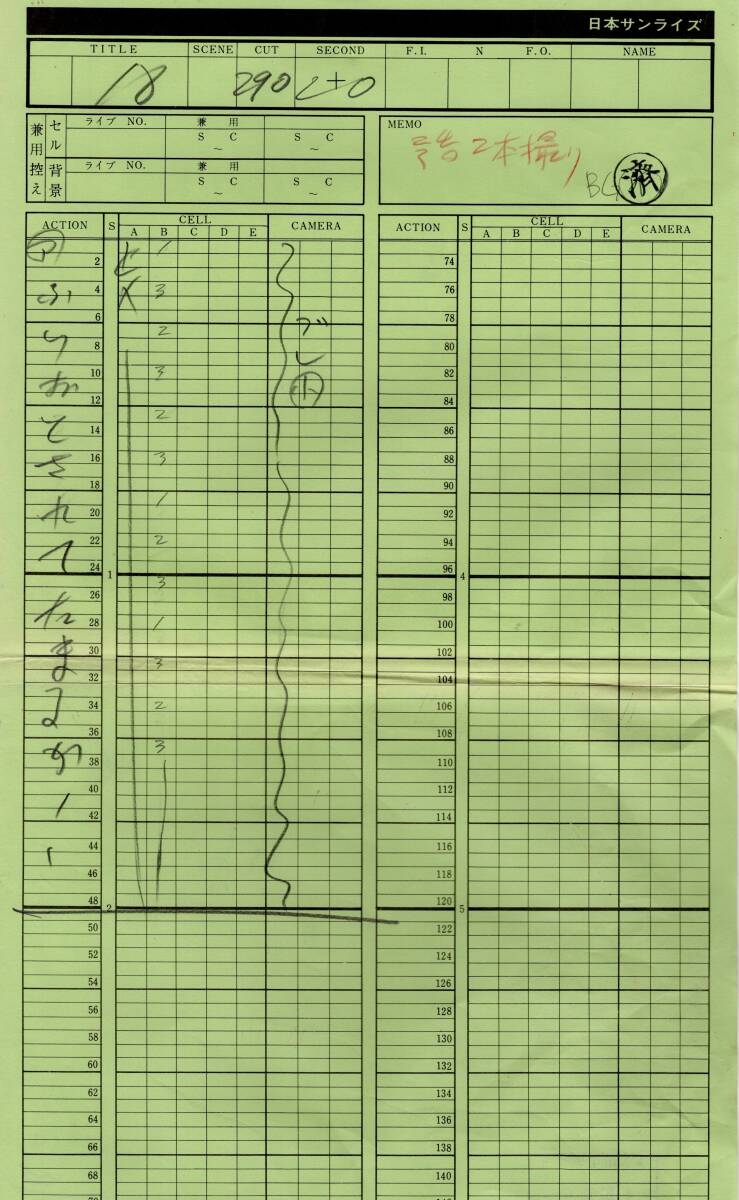 日本サンライズ
TITLE SCENE CUT SECOND F.I. N F.O. NAME
18 290 2+0
兼用控え
セル ライブ NO. 兼 用
S C S C
～ ～
背景 ライブ NO. 兼 用
S C S C
～ ～
MEMO
予告2本撮り
BG
ACTION S CELL CAMERA
A B C D E
ふりおとされてたまるかー
セ
1
3
2
3
2
3
1
2
3
1
3
2
3
ブレ
2
4
6
8
10
12
14
16
18
20
22
24
1
26
28
30
32
34
36
38
40
42
44
46
48
2
50
52
54
56
58
60
62
64
66
68
ACTION S CELL CAMERA
A B C D E
74
76
78
80
82
84
86
88
90
92
94
96
4
98
100
102
104
106
108
110
112
114
116
118
120
5
122
124
126
128
130
132
134
136
138
140